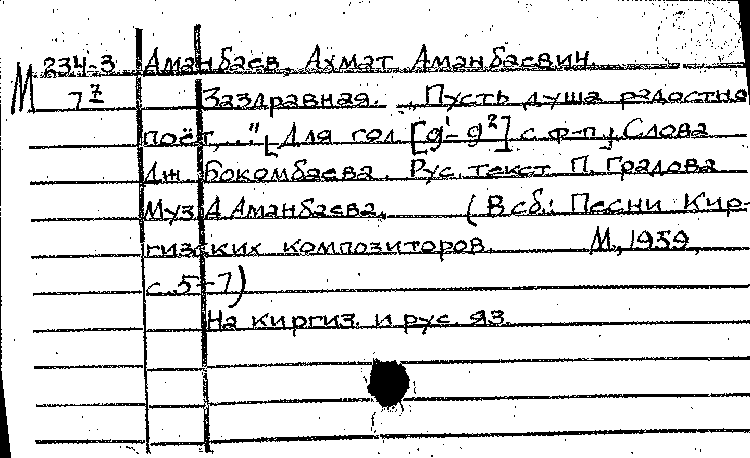 М 234-3 Аманбаев, Ахмат Аманбаевич.
7 7 Заздравная. „Пусть душа радостно
поёт,..." [Для гол. [g¹-g²] с ф-п], Слова
Дж. Бокомбаева. Рус. текст П. Градова
Муз. А. Аманбаева. (В сб.: Песни Кир-
гизских композиторов. М., 1959,
с. 5-7)
На киргиз. и рус. яз.